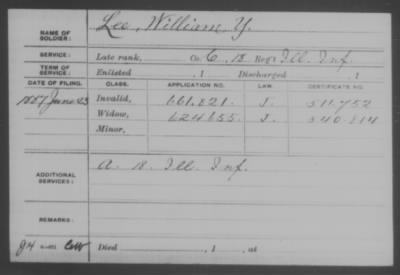 NAME OF SOLDIER: Lee, William Y.
SERVICE: Late rank, Co. C, 18 Reg't Ill. Inf.
TERM OF SERVICE: Enlisted , 1 Discharged , 1
DATE OF FILING. CLASS. APPLICATION NO. LAW. CERTIFICATE NO.
1887 June 23 Invalid, 661.821 J. 511.752
Widow, 624.655 J. 340.814
Minor,
ADDITIONAL SERVICES: A. 18. Ill. Inf.
REMARKS:
Died , 1 , at